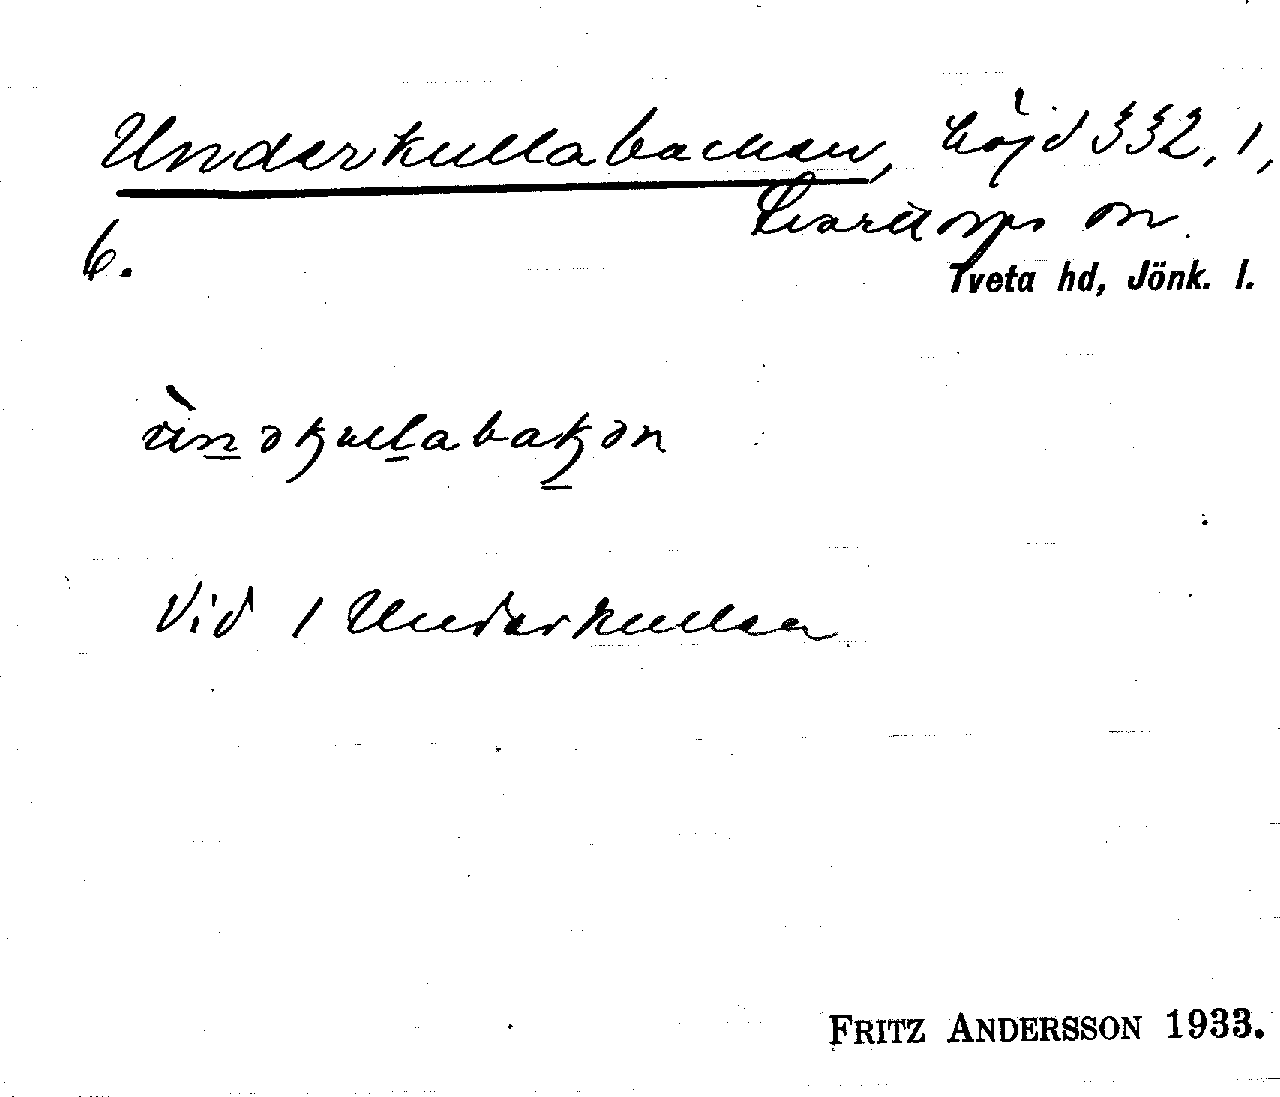 Underkullabacken, höjd 332, 1,
6. Svarttorps sn.
Tveta hd, Jönk. l.
ùnəkullabakən
Vid 1 Underkullen
FRITZ ANDERSSON 1933.